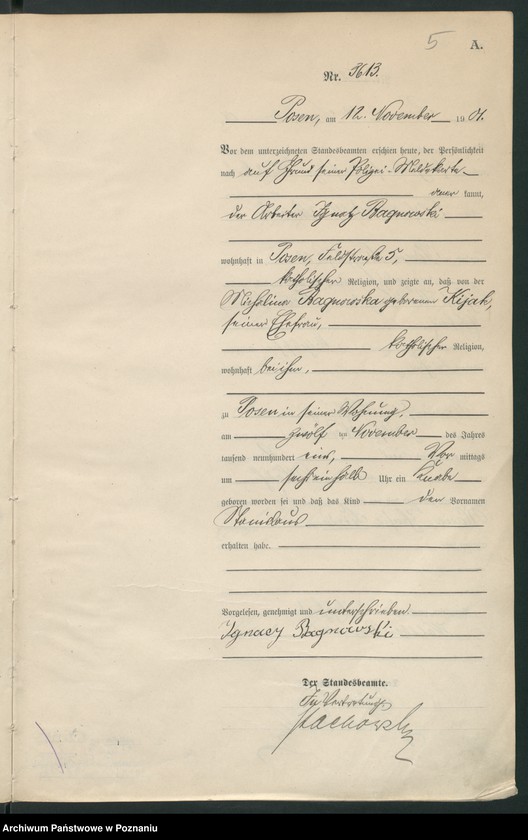 5 A.
Nr. 3613.
Posen, am 12. November 1901.
Vor dem unterzeichneten Standesbeamten erschien heute, der Persönlichkeit
nach auf Grund seiner Polizei-Meldekarte
aner kannt,
der Arbeiter Ignatz Bagnowski
wohnhaft in Posen, Feldstraße 5,
katholischer Religion, und zeigte an, daß von der
Michalina Bagnowska geborenen Kijak,
seiner Ehefrau,
katholischer Religion,
wohnhaft bei ihm,
zu Posen in seiner Wohnung,
am zwölf ten November des Jahres
tausend neunhundert eins, Vor mittags
um sechseinhalb Uhr ein Knabe
geboren worden sei und daß das Kind den Vornamen
Stanislaus
erhalten habe.
Vorgelesen, genehmigt und unterschrieben.
Ignacy Bagnowski
Der Standesbeamte.
In Vertretung.
Archiwum Państwowe w Poznaniu